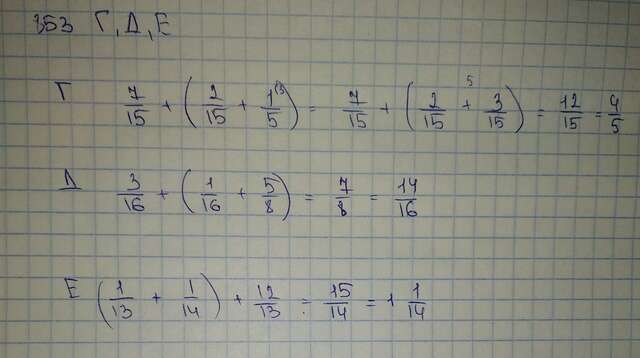 353 Г, Д, Е
Г 7/15 + (2/15 + 1/5 (3) = 7/15 + (2/15 + 3/15) 5 = 12/15 = 4/5
Д 3/16 + (1/16 + 5/8) = 7/8 = 14/16
Е (1/13 + 1/14) + 12/13 = 15/14 = 1 1/14